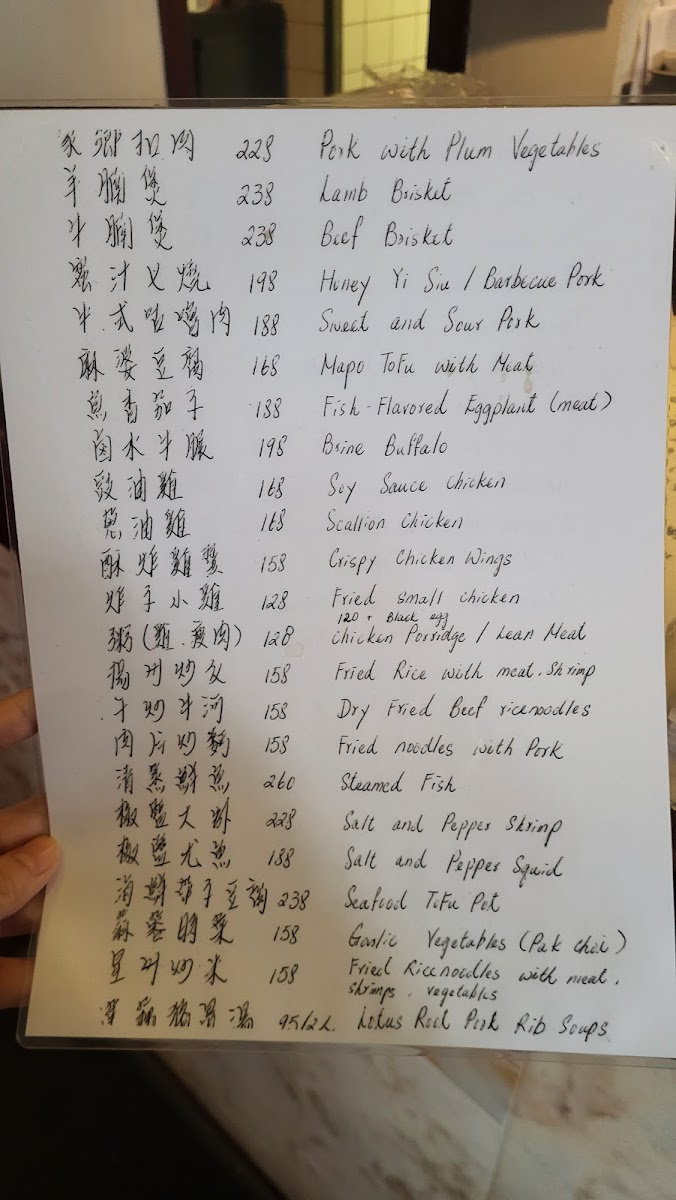 家鄉扣肉 228 Pork with Plum Vegetables
羊腩煲 238 Lamb Brisket
牛腩煲 238 Beef Brisket
蜜汁叉燒 198 Honey Yi Siu / Barbecue Pork
式咕嚕肉 188 Sweet and Sour Pork
麻婆豆腐 168 Mapo Tofu with Meat
魚香茄子 188 Fish-Flavored Eggplant (meat)
鹵水牛腱 198 Brine Buffalo
豉油雞 168 Soy Sauce Chicken
蔥油雞 168 Scallion Chicken
酥炸雞翼 158 Crispy Chicken Wings
炸子小雞 128 Fried Small chicken
120 + Black egg
粥(雞.瘦肉) 128 chicken Porridge / Lean Meat
揚州炒 158 Fried Rice with meat. Shrimp
干炒牛河 158 Dry Fried Beef ricenoodles
肉片炒麵 158 Fried noodles with Pork
清蒸鮮魚 260 Steamed Fish
椒鹽大虾 228 Salt and Pepper Shrimp
椒鹽尤魚 188 Salt and Pepper Squid
海鮮茄子豆腩 238 Seafood Tofu Pot
蒜蓉時菜 158 Garlic Vegetables (Pak choi)
星州炒米 158 Fried Ricenoodles with meat.
shrimps. vegetables
湯 95/22. Lotus Root Pork Rib Soups